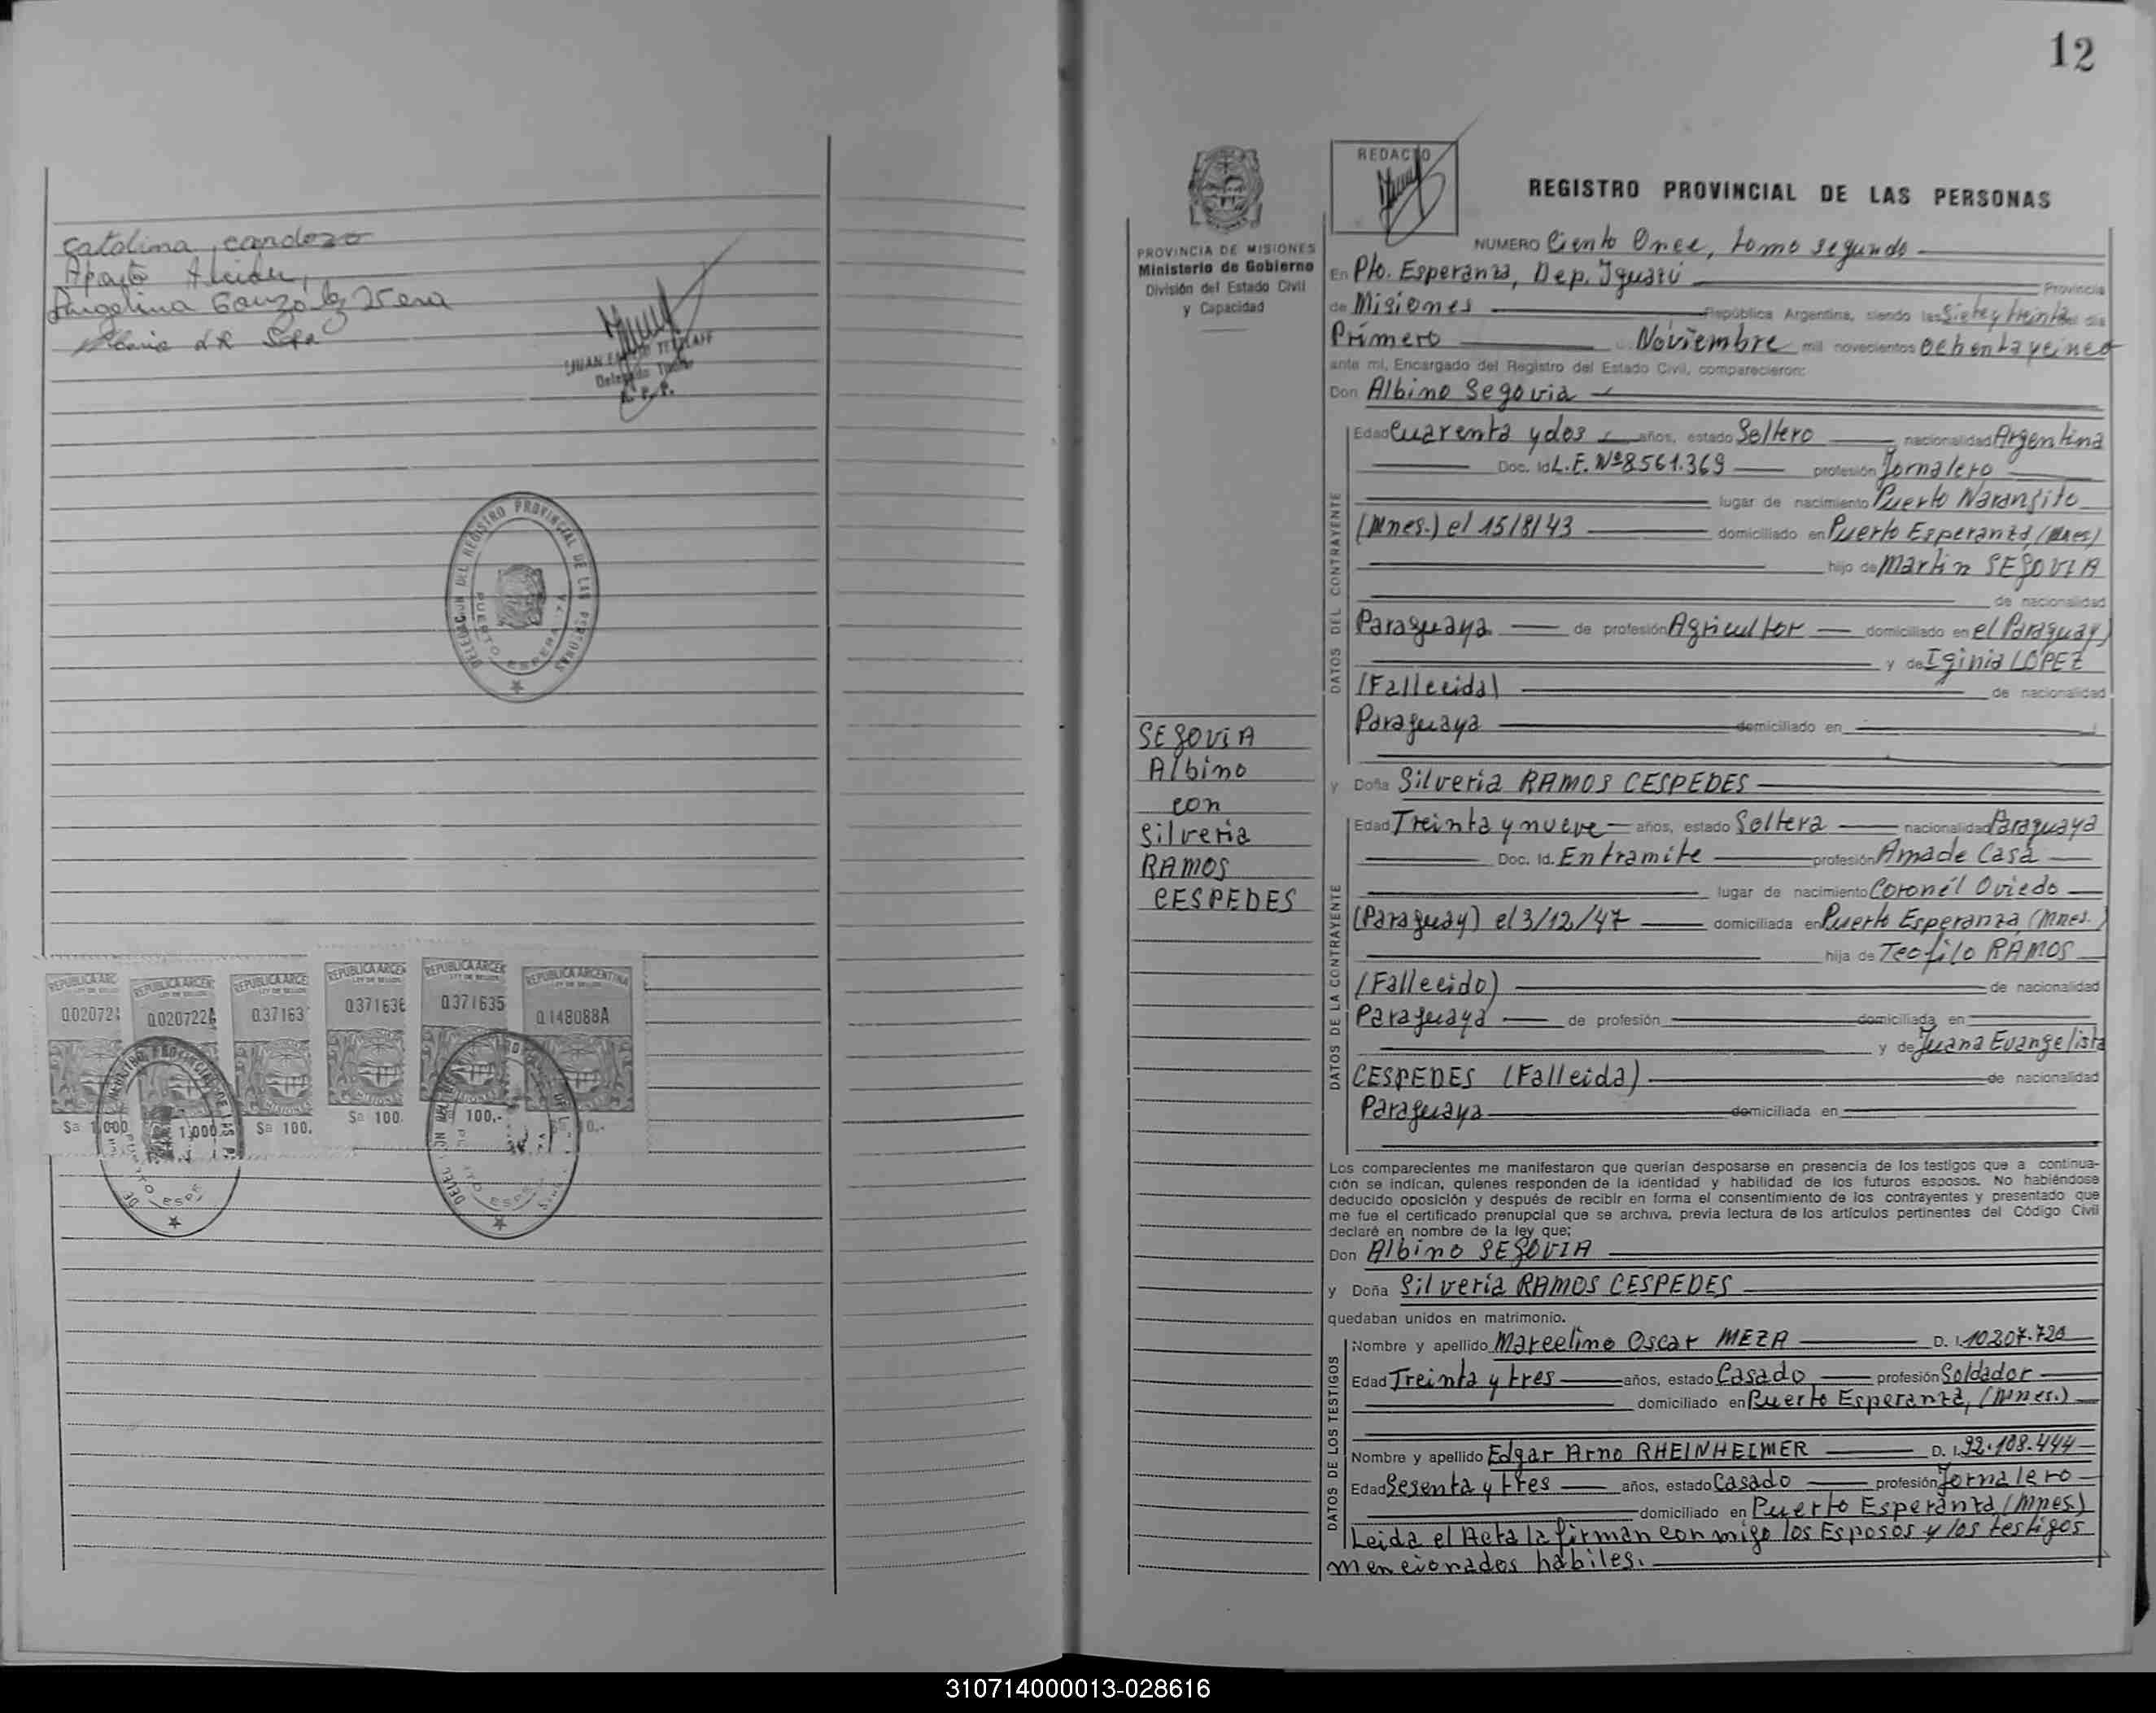 Catalina Candozo
Angelina Gonzalez
JUAN
Delegado Titular
R. P. P.
DELEGACION DEL REGISTRO PROVINCIAL DE LAS PERSONAS
PUERTO ESPERANZA
REPUBLICA ARGENTINA
LEY DE SELLOS
0020722A
037163
0371636
0371635
0148088A
MISIONES
$a 1.000
1.000
$a 100.
$a 100.
100.-
12
REDACTO
REGISTRO PROVINCIAL DE LAS PERSONAS
PROVINCIA DE MISIONES
Ministerio de Gobierno
División del Estado Civil
y Capacidad
NUMERO Ciento Once, tomo segundo
En Pto. Esperanza, Dep. Iguazú Provincia
de Misiones República Argentina, siendo las Siete y treinta del día
Primero Noviembre mil novecientos Ochenta y cinco
ante mi, Encargado del Registro del Estado Civil, comparecieron:
Don Albino Segovia
DATOS DEL CONTRAYENTE
Edad Cuarenta y dos años, estado Soltero nacionalidad Argentina
Doc. Id. L.E. Nº 8.561.369 profesión Jornalero
lugar de nacimiento Puerto Naranjito
(Mnes.) el 15/8/43 domiciliado en Puerto Esperanza, (Mnes)
hijo de Martin SEGOVIA
de nacionalidad
Paraguaya de profesión Agricultor domiciliado en el Paraguay)
y de Iginia LOPEZ
(Fallecida) de nacionalidad
Paraguaya domiciliado en
SEGOVIA
Albino
con
Silveria
RAMOS
CESPEDES
y Doña Silveria RAMOS CESPEDES
DATOS DE LA CONTRAYENTE
Edad Treinta y nueve años, estado Soltera nacionalidad Paraguaya
Doc. Id. En tramite profesión Ama de Casa
lugar de nacimiento Coronél Oviedo
(Paraguay) el 3/12/47 domiciliada en Puerto Esperanza (Mnes.)
hija de Teofilo RAMOS
(Fallecido) de nacionalidad
Paraguaya de profesión domiciliada en
y de Juana Evangelista
CESPEDES (Falleida) de nacionalidad
Paraguaya domiciliada en
Los comparecientes me manifestaron que querían desposarse en presencia de los testigos que a continua-
ción se indican, quienes responden de la identidad y habilidad de los futuros esposos. No habiéndose
deducido oposición y después de recibir en forma el consentimiento de los contrayentes y presentado que
me fue el certificado prenupcial que se archiva, previa lectura de los artículos pertinentes del Código Civil
declaré en nombre de la ley que:
Don Albino SEGOVIA
y Doña Silveria RAMOS CESPEDES
quedaban unidos en matrimonio.
DATOS DE LOS TESTIGOS
Nombre y apellido Marcelino Oscar MEZA D. I. 10.207.720
Edad Treinta y tres años, estado Casado profesión Soldador
domiciliado en Puerto Esperanza, (Mnes.)
Nombre y apellido Edgar Arno RHEINHEIMER D. I. 92.108.444
Edad Sesenta y tres años, estado Casado profesión Jornalero
domiciliado en Puerto Esperanza (Mnes)
Leida el Acta la firman conmigo los Esposos y los testigos
mencionados habiles.
310714000013-028616